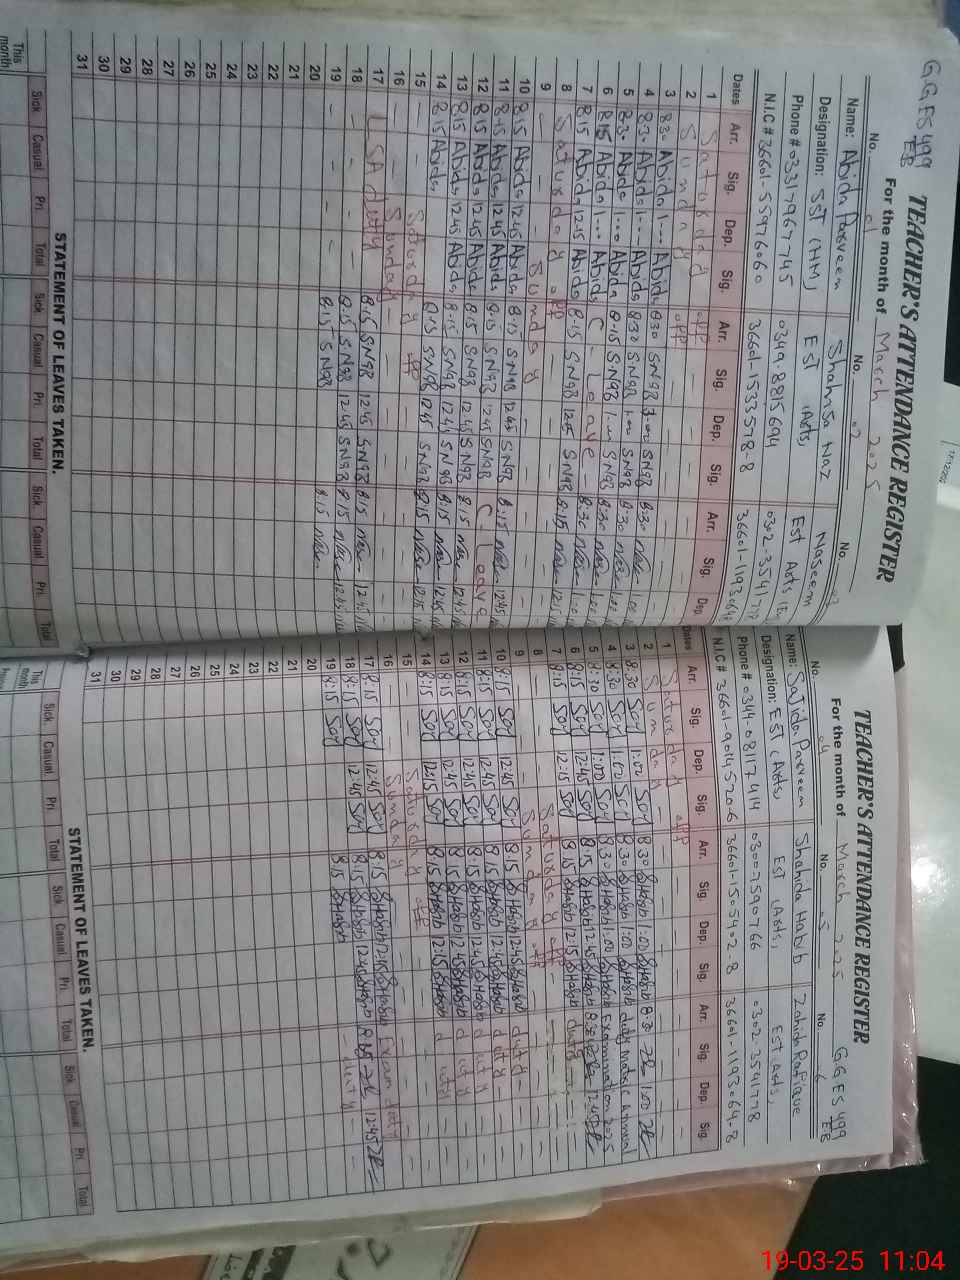 G.G.ES 499/EB
TEACHER'S ATTENDANCE REGISTER
For the month of March 2025
No. 01 No. 02 No. 03
Name: Abida Parveen Shamsa Naz Naseem
Designation: SST (HM) EST (Arts) Est Arts
Phone # 03317967745 0349-8815694
N.I.C # 36601-5597606-0 36601-1533578-8
Dates Arr. Sig. Dep. Sig. Arr. Sig. Dep. Sig. Arr. Sig. Dep
1 Saturday off
2 Sunday off
3 8:30 Abida 1:00 Abida 8:30 SN98 1:00 SN98 8:30
4 8:30 Abida 1:00 Abida 8:30 SN98 1:00 SN98 8:30
5 8:30 Abida 1:00 Abida 8:15 SN98 1:00 SN98 8:30
6 8:15 Abida 1:00 Abida C-Leave 8:30
7 8:15 Abida 12:15 Abida 8:15 SN98 12:15 SN98 8:15
8 Saturday off
9 Sunday
10 8:15 Abida 12:45 Abida 8:15 SN98 12:45 SN98 8:15 12:45
11 8:15 Abida 12:45 Abida 8:15 SN98 12:45 SN98 C-Leave
12 8:15 Abida 12:45 Abida 8:15 SN98 12:45 SN98 8:15 12:45
13 8:15 Abida 12:45 Abida 8:15 SN98 12:45 SN98 8:15 12:45
14 8:15 Abida 12:45 Abida 8:15 SN98 12:45 SN98 8:15 12:15
15 Saturday off
16 Sunday
17 LSA duty 8:15 SN98 12:45 SN98 8:15 12:45
18 8:15 SN98 12:45 SN98 8:15 12:45
19 8:15 SN98 8:15
20
21
22
23
24
25
26
27
28
29
30
31
STATEMENT OF LEAVES TAKEN.
Sick Casual Pri. Total Sick Casual Pri. Total Sick Casual Pri. Total
This month
TEACHER'S ATTENDANCE REGISTER
G.G.ES 499/EB
For the month of March 2025
No. 04 No. 5 No. 6
Name: Sajida Parveen Shahida Habib Zahida Rafique
Designation: EST (Arts) Est (Arts) Est Arts.
Phone # 0344-0817414 0300-7590766 0302-3541778
N.I.C # 36601-9014520-6 36601-1505402-8 36601-1193064-8
Dates Arr. Sig. Dep. Sig. Arr. Sig. Dep. Sig. Arr. Sig. Dep. Sig.
1 Saturday off
2 Sunday
3 8:30 Say 1:00 Say 8:30 SHabib 1:00 SHabib 8:30 1:00
4 8:30 Say 1:00 Say 8:30 SHabib 1:00 SHabib duty Matric Annual
5 8:30 Say 1:00 Say 8:30 SHabib 1:00 SHabib Examination 2025
6 8:15 Say 12:45 Say 8:15 SHabib 12:45 SHabib 8:30 12:45
7 8:15 Say 12:15 Say 8:15 SHabib 12:15 SHabib duty
8 Saturday off
9 Sunday off
10 8:15 Say 12:45 Say 8:15 SHabib 12:45 SHabib duty
11 8:15 Say 12:45 Say 8:15 SHabib 12:45 SHabib duty
12 8:15 Say 12:45 Say 8:15 SHabib 12:45 SHabib duty
13 8:15 Say 12:45 Say 8:15 SHabib 12:45 SHabib duty
14 8:15 Say 12:15 Say 8:15 SHabib 12:15 SHabib
15 Saturday off
16 Sunday Exam duty
17 8:15 Say 12:45 Say 8:15 SHabib 12:45 SHabib 8:15 12:45
18 8:15 Say 12:45 Say 8:15 SHabib 12:45 SHabib duty
19 8:15 Say 8:15 SHabib
20
21
22
23
24
25
26
27
28
29
30
31
STATEMENT OF LEAVES TAKEN.
Sick Casual Pri. Total Sick Casual Pri. Total Sick Casual Pri Total
This month
19-03-25 11:04